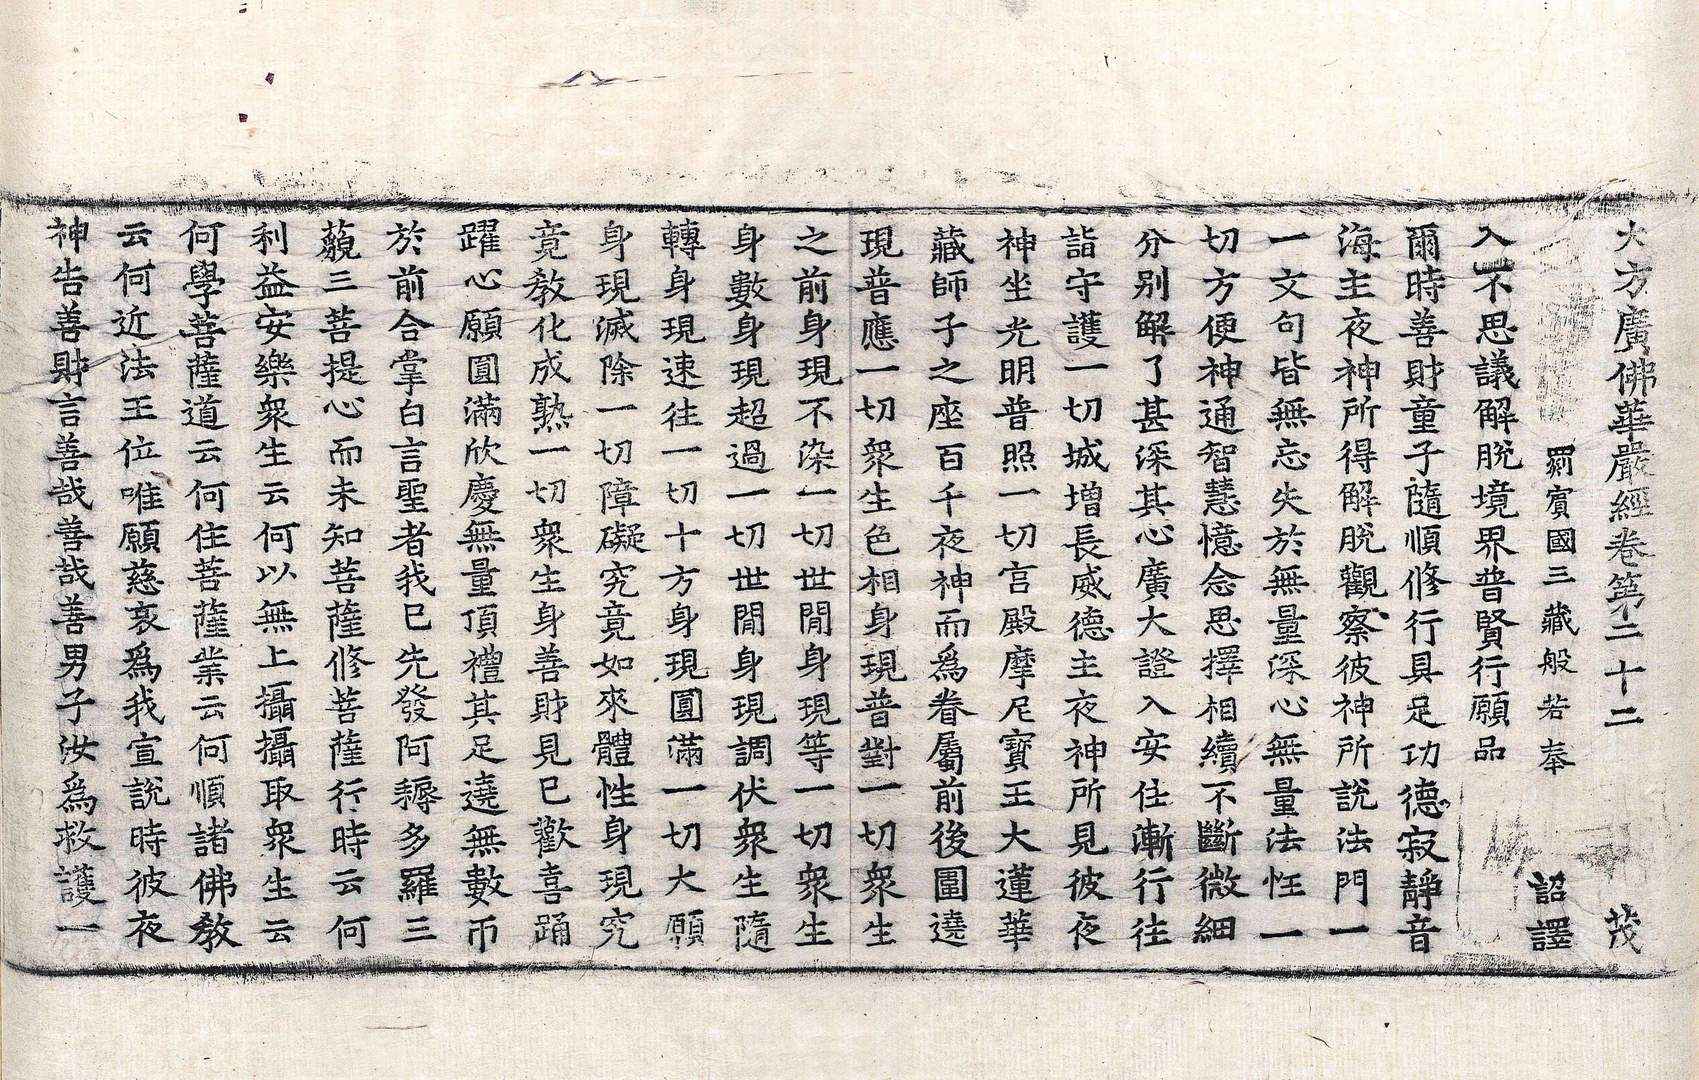 大方廣佛華嚴經卷第二十二　茂
罽賓國三藏般若奉　詔譯
入不思議解脫境界普賢行願品
爾時善財童子隨順修行具足功德寂靜音
海主夜神所得解脫觀察彼神所說法門一
一文句皆無忘失於無量深心無量法性一
切方便神通智慧憶念思擇相續不斷微細
分別解了甚深其心廣大證入安住漸行往
詣守護一切城增長威德主夜神所見彼夜
神坐光明普照一切宮殿摩尼寶王大蓮華
藏師子之座百千夜神而爲眷屬前後圍遶
現普應一切衆生色相身現普對一切衆生
之前身現不染一切世閒身現等一切衆生
身數身現超過一切世閒身現調伏衆生隨
轉身現速往一切十方身現圓滿一切大願
身現滅除一切障礙究竟如來體性身現究
竟敎化成熟一切衆生身善財見已歡喜踊
躍心願圓滿欣慶無量頂禮其足遶無數帀
於前合掌白言聖者我已先發阿耨多羅三
藐三菩提心而未知菩薩修菩薩行時云何
利益安樂衆生云何以無上攝攝取衆生云
何學菩薩道云何住菩薩業云何順諸佛敎
云何近法王位唯願慈哀爲我宣說時彼夜
神告善財言善哉善哉善男子汝爲救護一